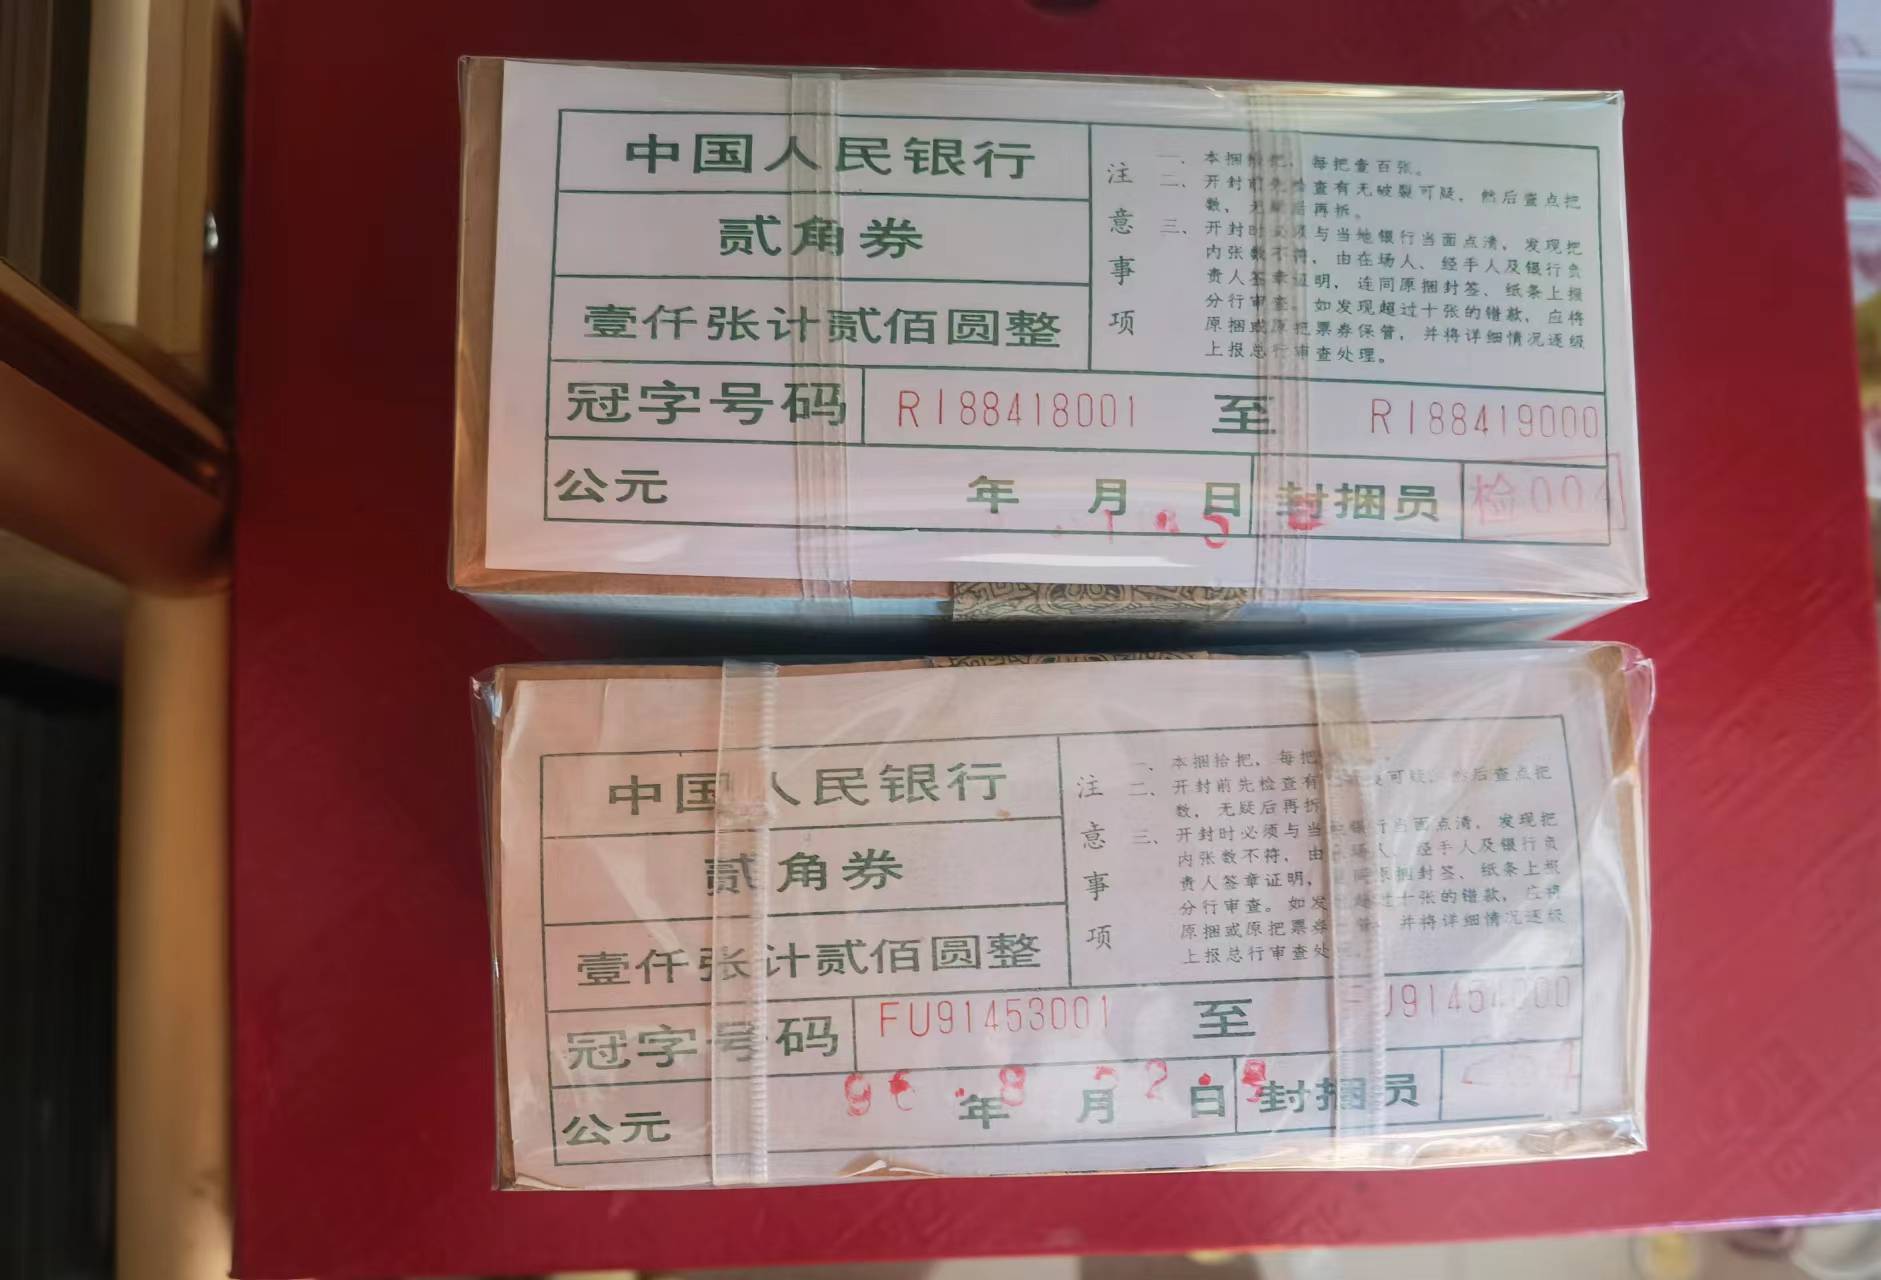 中国人民银行
贰角券
壹仟张计贰佰圆整
注意事项
一、本捆拾把，每把壹百张。
二、开封前先检查有无破裂可疑，然后查点把
数，无疑后再拆。
三、开封时必须与当地银行当面点清，发现把
内张数不符，由在场人、经手人及银行负
责人签章证明，连同原捆封签、纸条上报
分行审查。如发现超过十张的错款，应将
原捆或原把票券保管，并将详细情况逐级
上报总行审查处理。
冠字号码 RI88418001 至 RI88419000
公元 年 月 日 封捆员 检004
中国人民银行
贰角券
壹仟张计贰佰圆整
注意事项
一、本捆拾把，每把
二、开封前先检查有 可疑，然后查点把
数，无疑后再拆
三、开封时必须与当 银行当面点清，发现把
内张数不符，由 场人、经手人及银行负
责人签章证明， 原捆封签、纸条上报
分行审查。如发 超过十张的错款，应将
原捆或原把票券 管，并将详细情况逐级
上报总行审查处
冠字号码 FU91453001 至 FU91454000
公元 年 月 日 封捆员